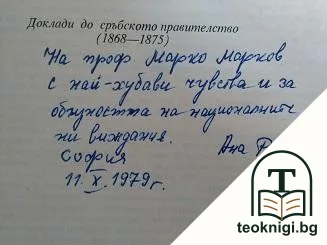 Доклади до сръбското правителство
(1868—1875)
На проф. Марко Марков
с най-хубави чувства и за
общността на националните
ни виждания.
Ана
София
11. X. 1979 г.
teoknigi.bg